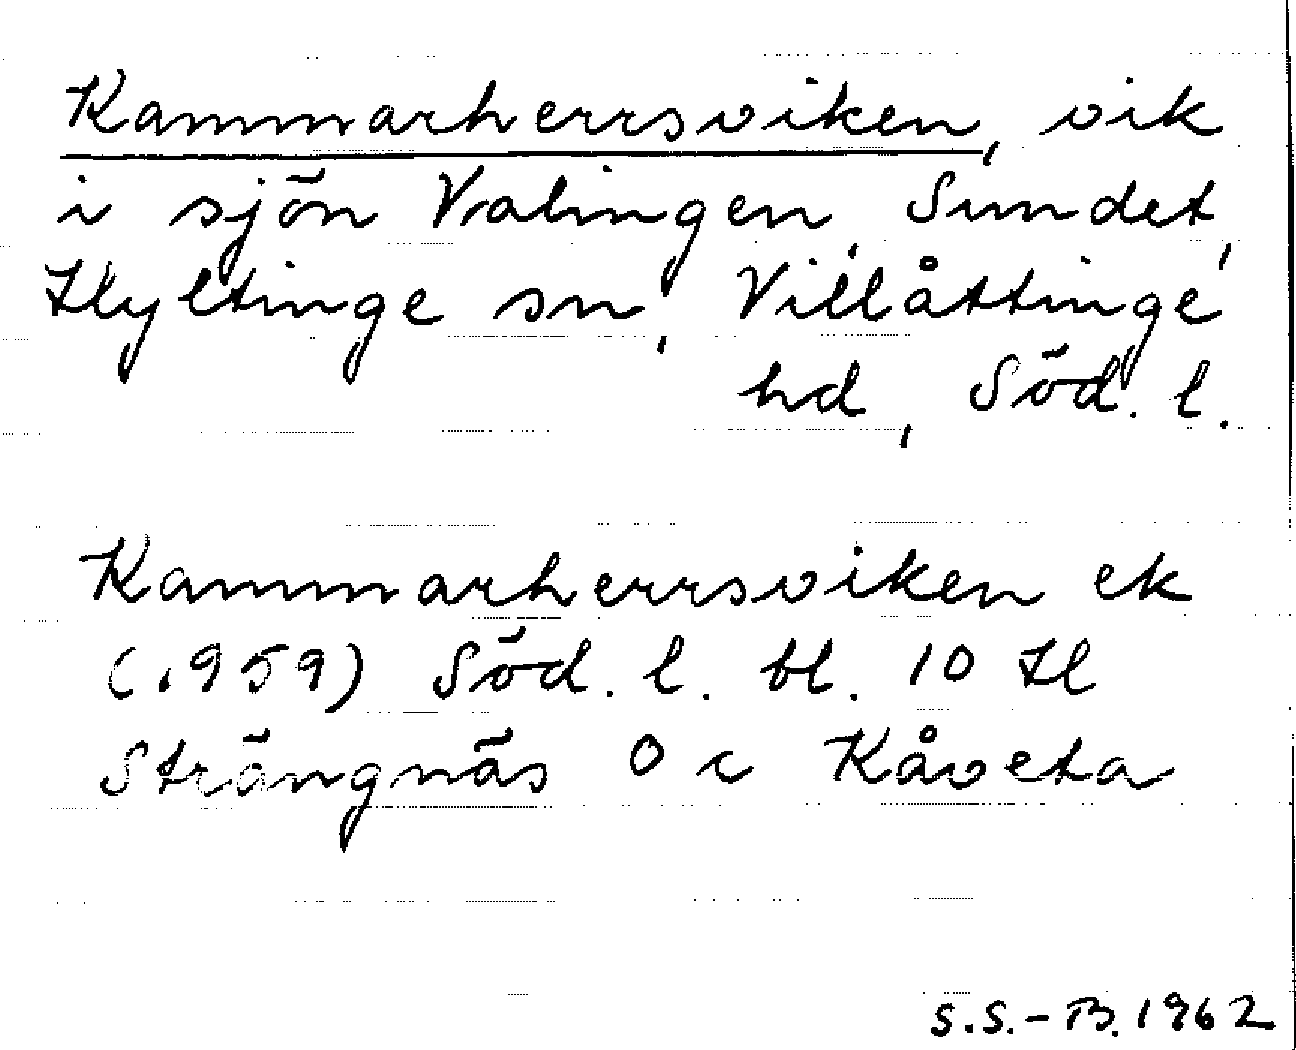 Kammarherrsviken, vik
i sjön Valingen, Sundet,
Hyltinge sn, Villåttinge
hd, Söd. l.
Kammarherrsviken ek
(1959) Söd. l. bl. 10 H
Strängnäs O c Kåveta
S.S.-B. 1962